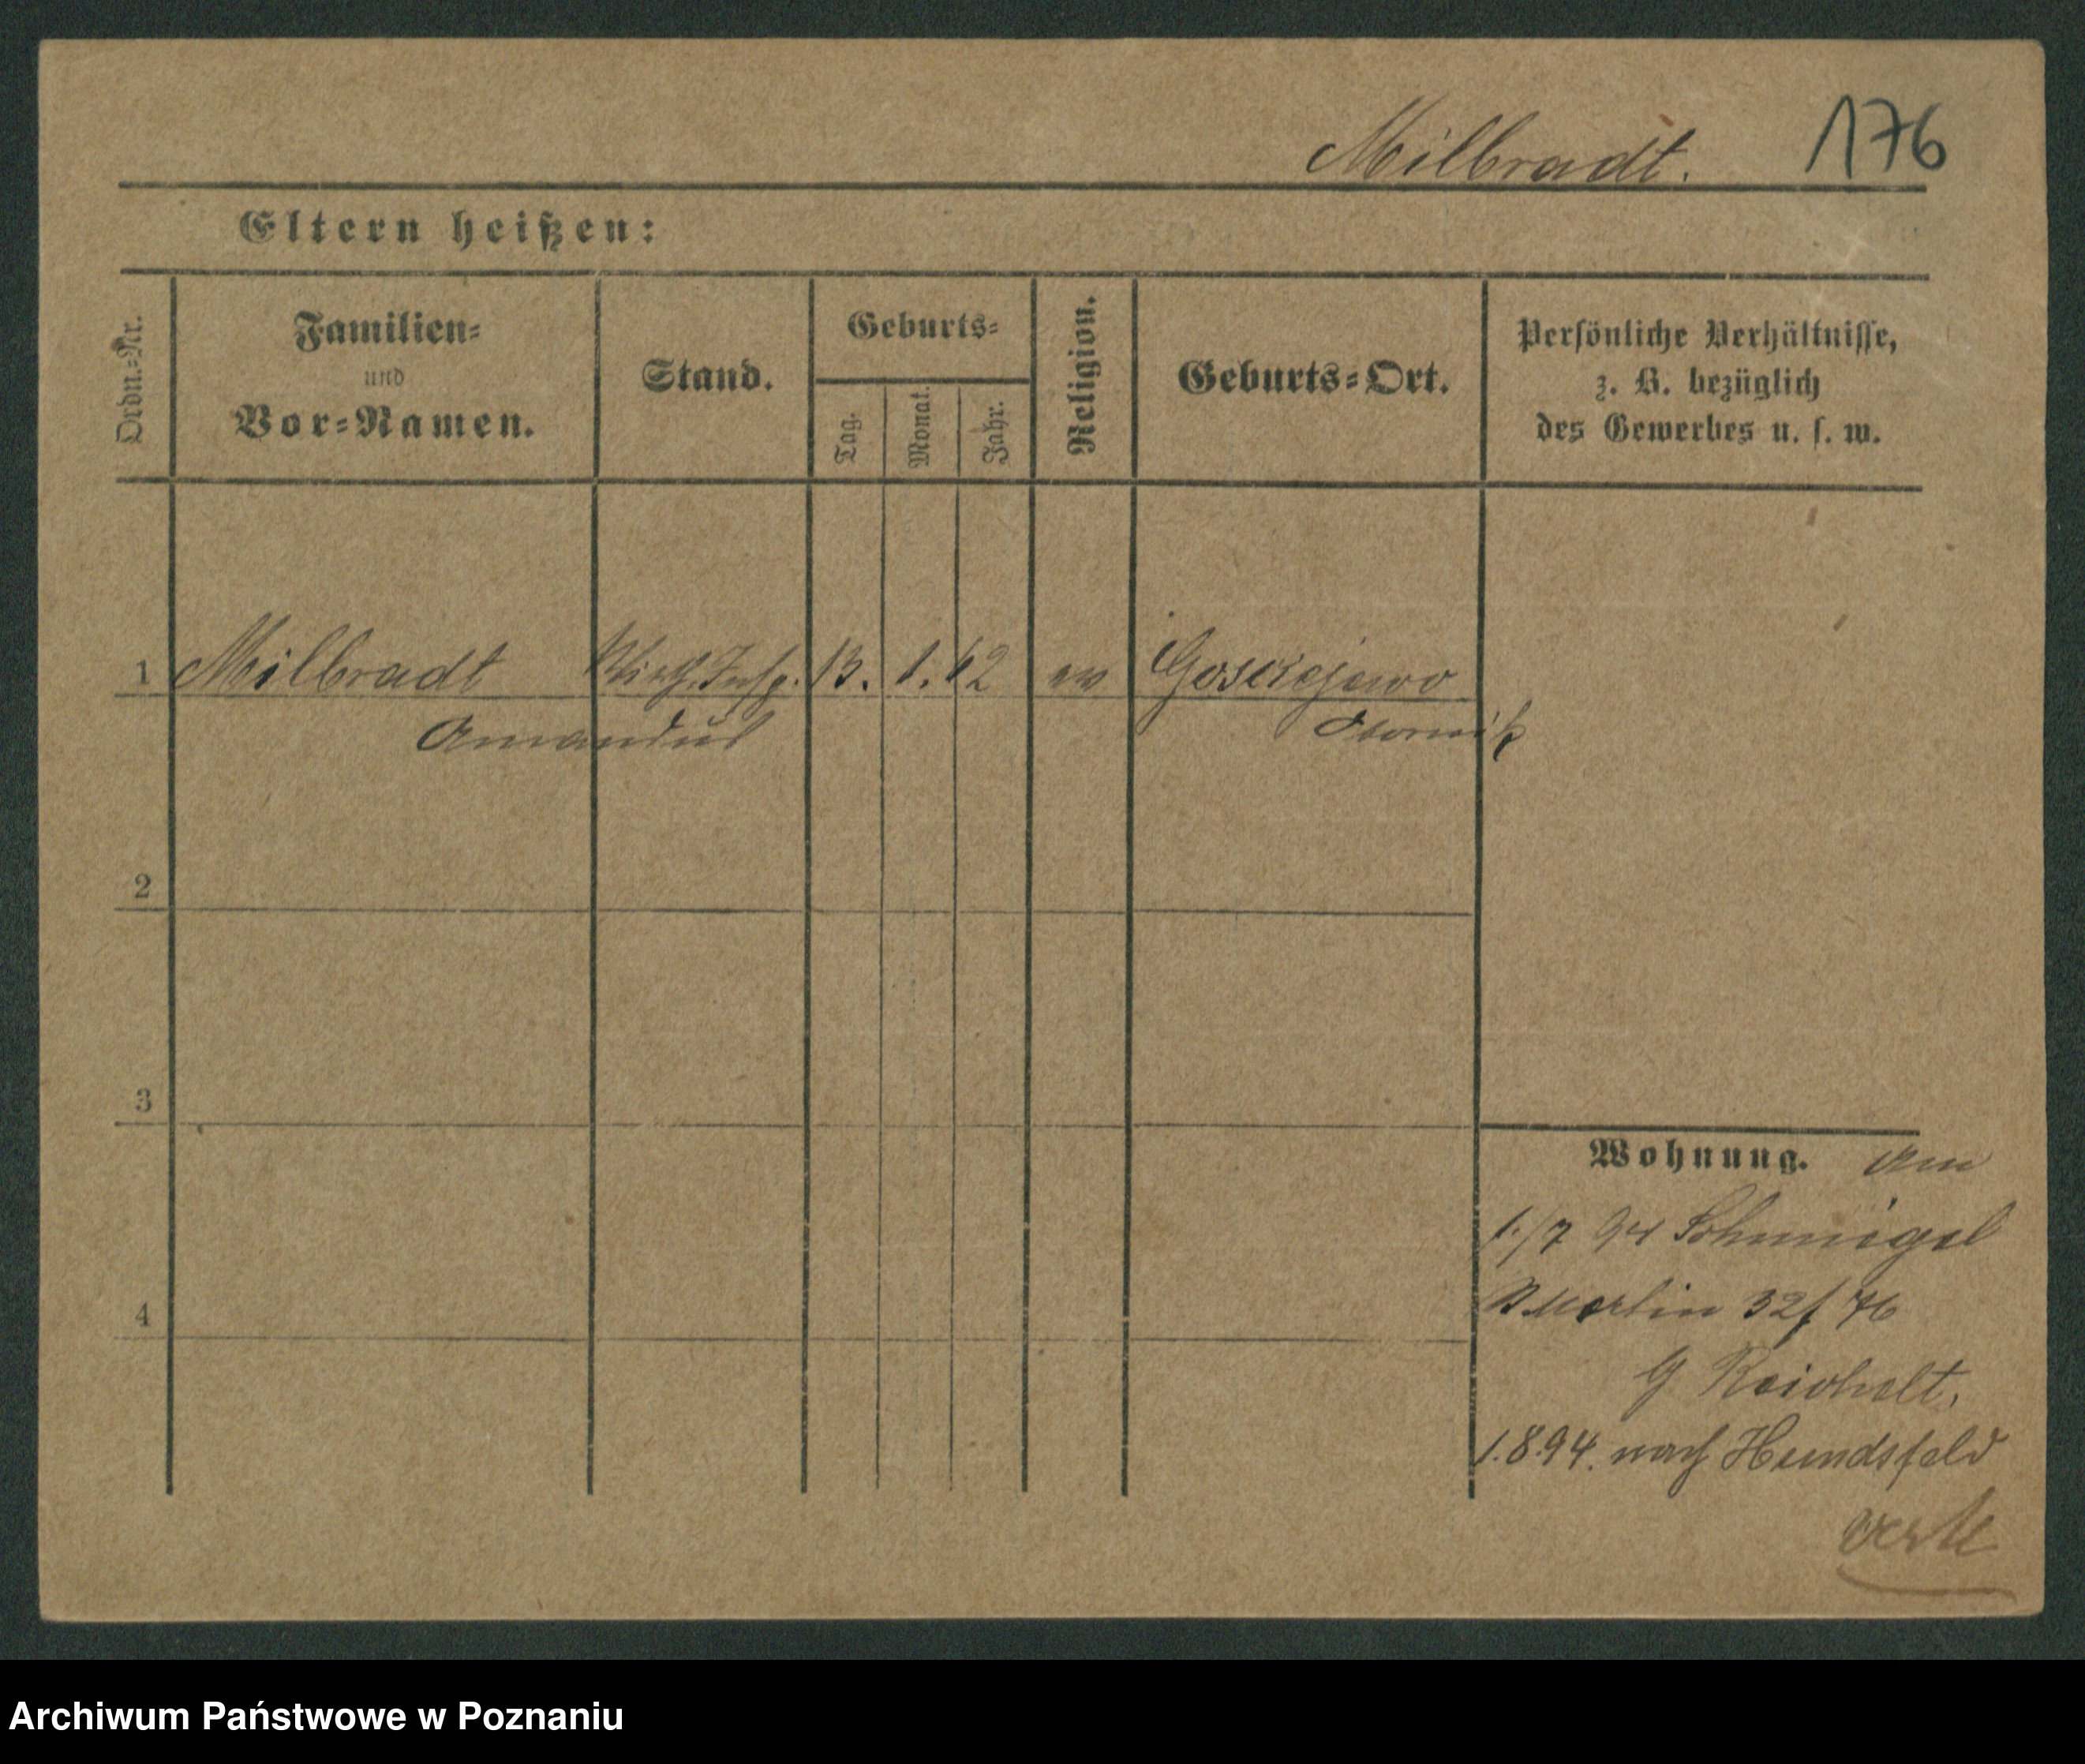 Milbradt. 176
Eltern heißen:
Ordn.-Nr.
Familien-
und
Vor-Namen.
Stand.
Geburts-
Tag.
Monat.
Jahr.
Religion.
Geburts-Ort.
Persönliche Verhältnisse,
z. B. bezüglich
des Gewerbes u. s. w.
1 Milbradt Wirth. Insp. 13. 1. 62 ev Gosciejewo
Amandus Obornik
2
3
4
Wohnung. Am
1./7 94 Schmiegel
St Martin 32/ 76
Reichelt.
1.8.94. nach Hundsfeld
Archiwum Państwowe w Poznaniu